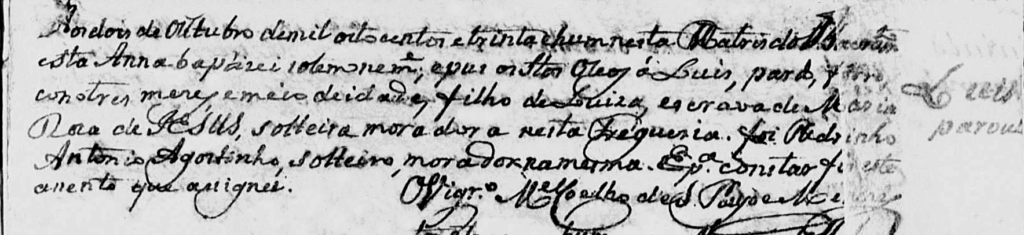 Aos dois de Outubro de mil oito centos e trinta e hum nesta Matris do
esta Anna baptizei solemnem.e, e pus os Stos Oleos á Luis, pardo,
con tres mezes e meio de idade, filho de Luiza, escrava de Maria
Roza de JESUS, solteira moradora nesta Freguesia. foi Padrinho
Antonio Agostinho, solteiro, morador na mesma. E p.a constar fis este
acento que asignei.
O Vigr.o M.el Coelho de S. Payo e Me
Luis
pardo